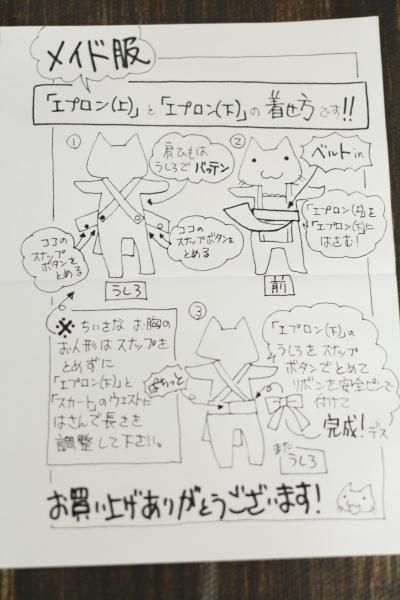 メイド服
「エプロン(上)」と「エプロン(下)」の着せ方です!!
①
肩ひもは
うしろで バッテン
ココの
スナップ
ボタンを
とめる
ココの
スナップボタンを
とめる
うしろ
②
ベルトin
「エプロン(上)」を
「エプロン(下)」に
はさむ!
前
※ ちいさな お胸の
お人形は スナップを
とめずに
「エプロン(下)」と
「スカート」のウエストに
はさんで長さを
調整して下さい。
③
ぱちっと
「エプロン(下)」の
うしろを スナップ
ボタンでとめて
リボンを安全ピンで
付けて
完成!デス
また
うしろ
お買い上げありがとうございます!